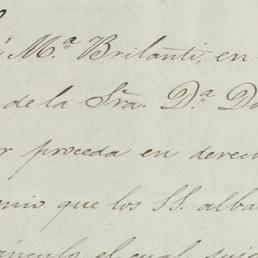 Mª Brilanti, en
de la Sra. Dª D
proceda en derec
que los SS. alba
el cual